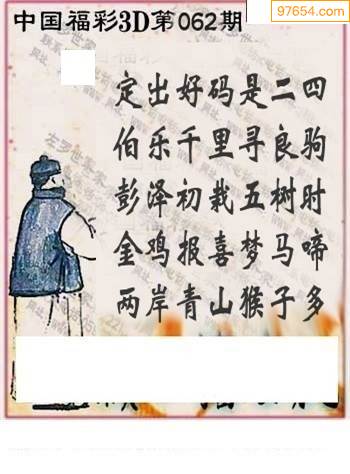 97654.com
中国福彩3D第062期
定出好码是二四
伯乐千里寻良驹
彭泽初栽五树时
金鸡报喜梦马啼
两岸青山猴子多